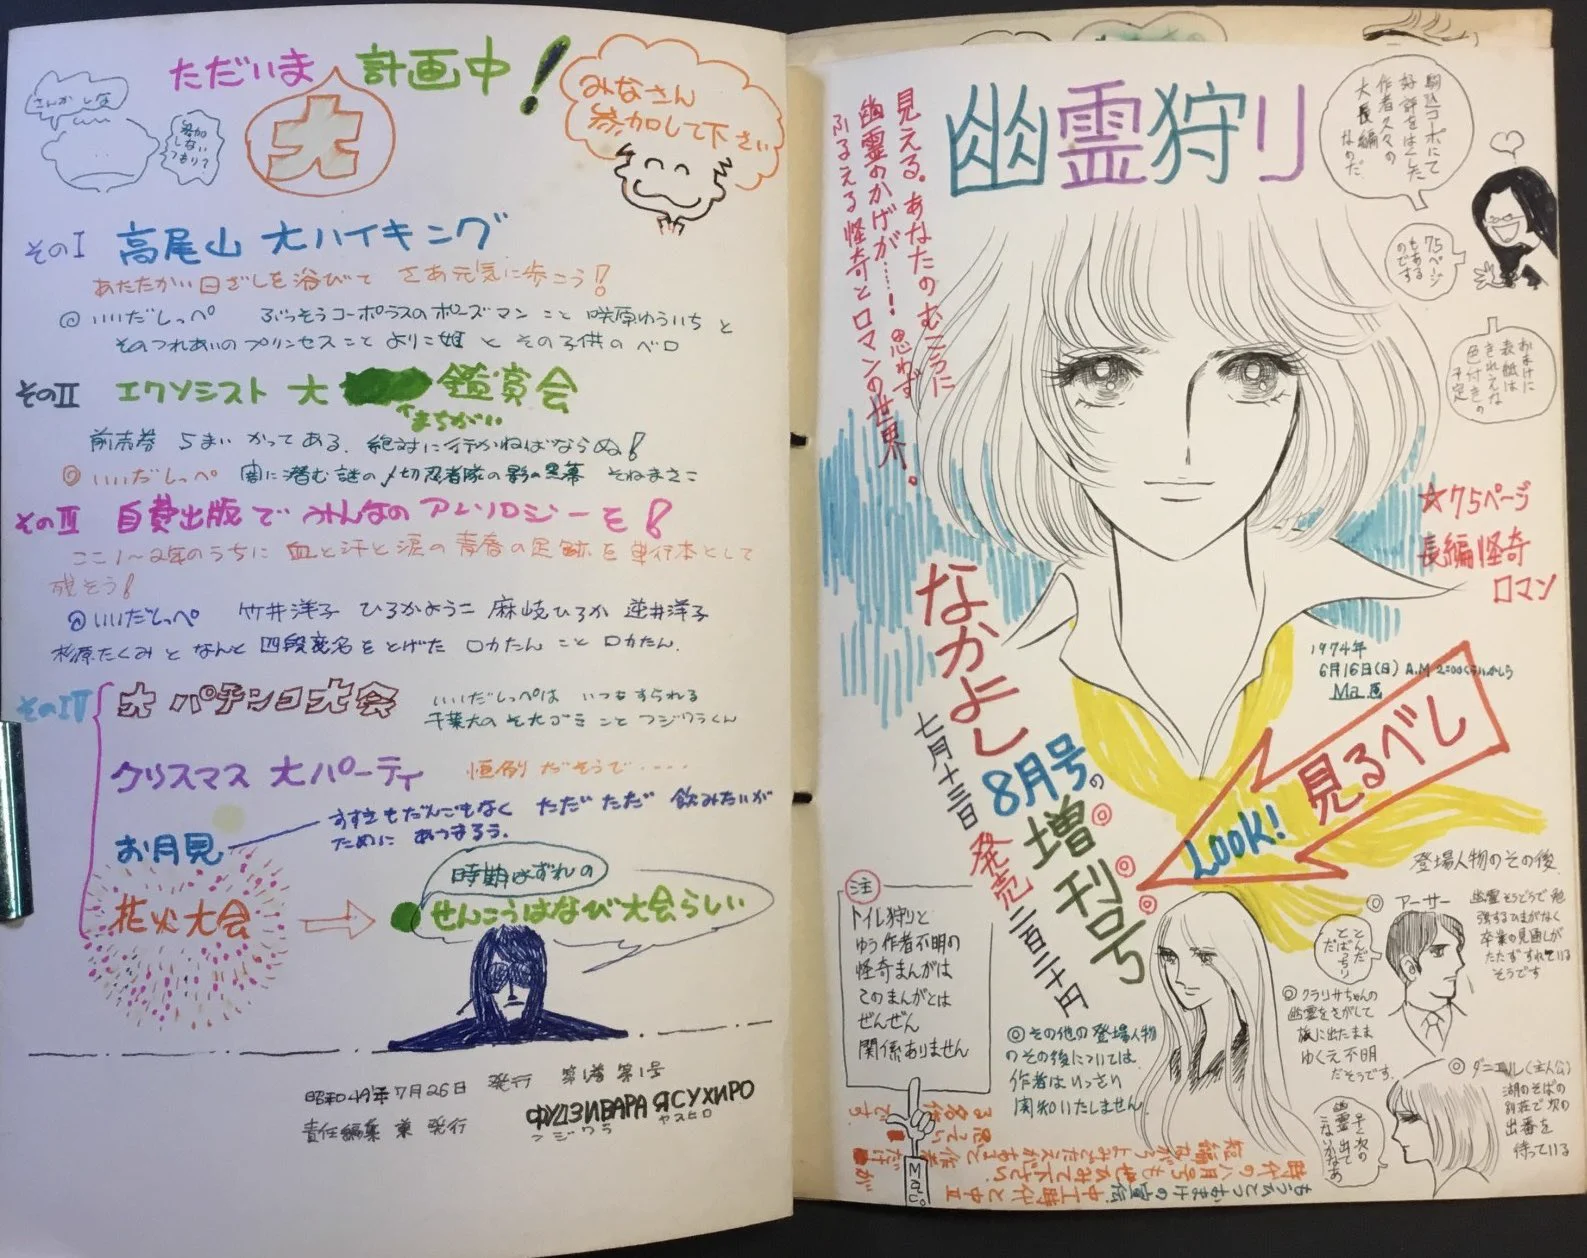 ただいま 計画中!
大
さんかしな
参加
しない
つもり?
みなさん
参加して下さい
そのI 高尾山 大ハイキング
あたたかい日ざしを浴びて さあ元気に歩こう!
◎いいだしっぺ ぶっそうコーポラスのポーズマン こと 咲原ゆういち と
そのつれあいのプリンセスこと よりこ姫 と その子供の ベロ
そのII エクソシスト 大 鑑賞会
まちがい
前売券 5まい かってある. 絶対に行かねばならぬ!
◎いいだしっぺ 闇に潜む謎の〆切忍者隊の影の黒幕 そねまさこ
そのIII 自費出版で みんなの アンソロジーを!
ここ1〜2年のうちに 血と汗と涙の青春の足跡を 単行本として
残そう!
◎いいだしっぺ 竹井洋子 ひろかようこ 麻岐ひろか 逆井洋子
杉原たくみ と なんと 四段変名を とげた ロカたん こと ロカたん.
そのIV 大 パチンコ大会 いいだしっぺは いつもすられる
千葉大の そ大ゴミ こと フジワラくん
クリスマス 大パーティ 恒例 だそうで‥‥
お月見 すすきもだんごもなく ただ ただ 飲みたいが
ために あつまろう.
花火大会
時期はずれの
せんこうはなび大会らしい
昭和49年7月26日 発行 第1巻 第1号
責任編集 兼 発行 ФУДЗИВАРА ЯСУХИРО
フジワラ ヤスヒロ
幽霊狩り
見える。あなたのむこうに
幽霊のかげが‥‥! 思わず
ふるえる怪奇とロマンの世界。
駒込コーポにて
好評をはくした
作者久々の
大長編
なのだ
75ページ
もある
のでする
おまけに
表紙は
きれえな
色付きの
予定
☆75ページ
長編怪奇
ロマン
1974年
6月16日(日) A.M 2:00くらいかしら
なかよし
8月号の
増刊号
七月十三日
発売
二百二十円
見るべし
LOOK!
注
トイレ狩りと
ゆう作者不明の
怪奇まんがは
このまんがとは
ぜんぜん
関係ありません
登場人物のその後
◎アーサー
幽霊そうどうで勉
強するひまがなく
卒業の見通しが
たたず すれている
そうです
とんだ
とばっちり
だ
◎クラリサちゃんの
幽霊をさがして
旅に出たまま
ゆくえ不明
だそうです.
◎その他の登場人物
のその後については
作者はいっさい
関知いたしません
◎ダニエル(主人公)
湖のそばの
別荘で次の
出番を
待っている